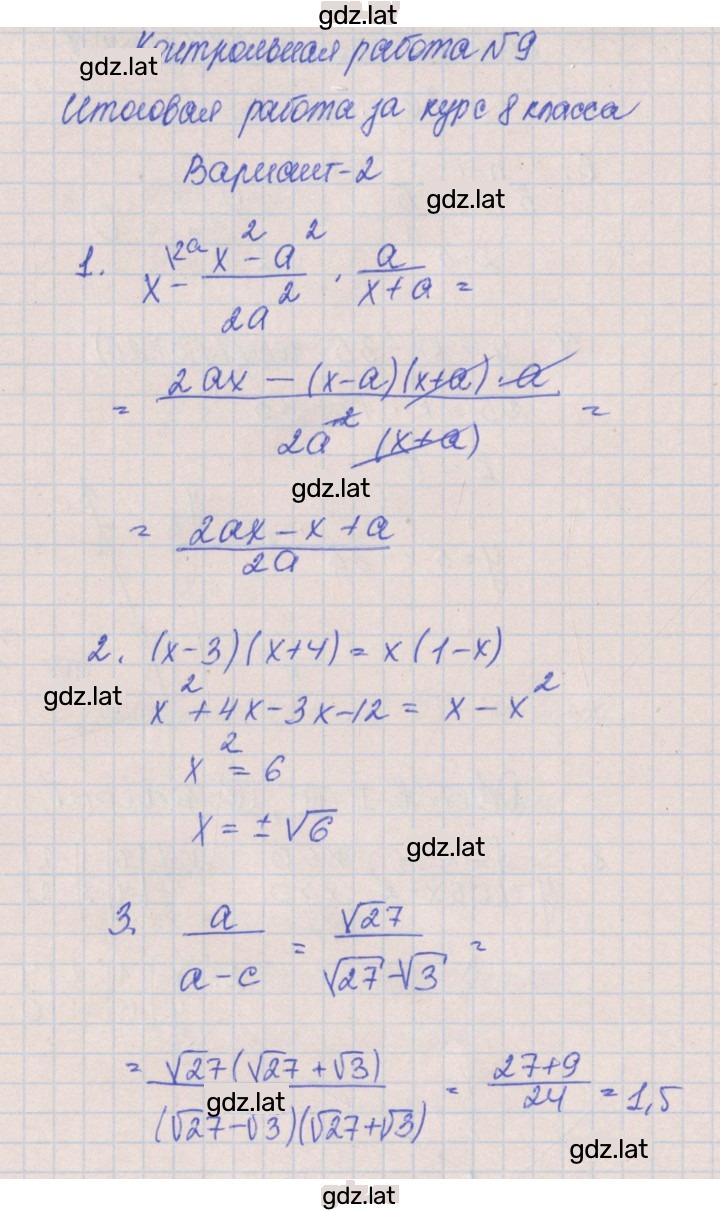 gdz.lat
Контрольная работа №9
gdz.lat
Итоговая работа за курс 8 класса
Вариант-2
gdz.lat
1. x^{\2a} - (x² - a²)/(2a²) · a/(x+a) =
= (2ax - (x-a)(x+a)·a)/(2a² (x+a)) =
gdz.lat
= (2ax - x + a)/(2a)
2. (x-3)(x+4) = x(1-x)
gdz.lat
x² + 4x - 3x - 12 = x - x²
x² = 6
x = ± √6
gdz.lat
3. a/(a-c) = √27/(√27 - √3) =
= √27(√27 + √3)/((√27-√3)(√27+√3)) = (27+9)/24 = 1,5
gdz.lat
gdz.lat
gdz.lat